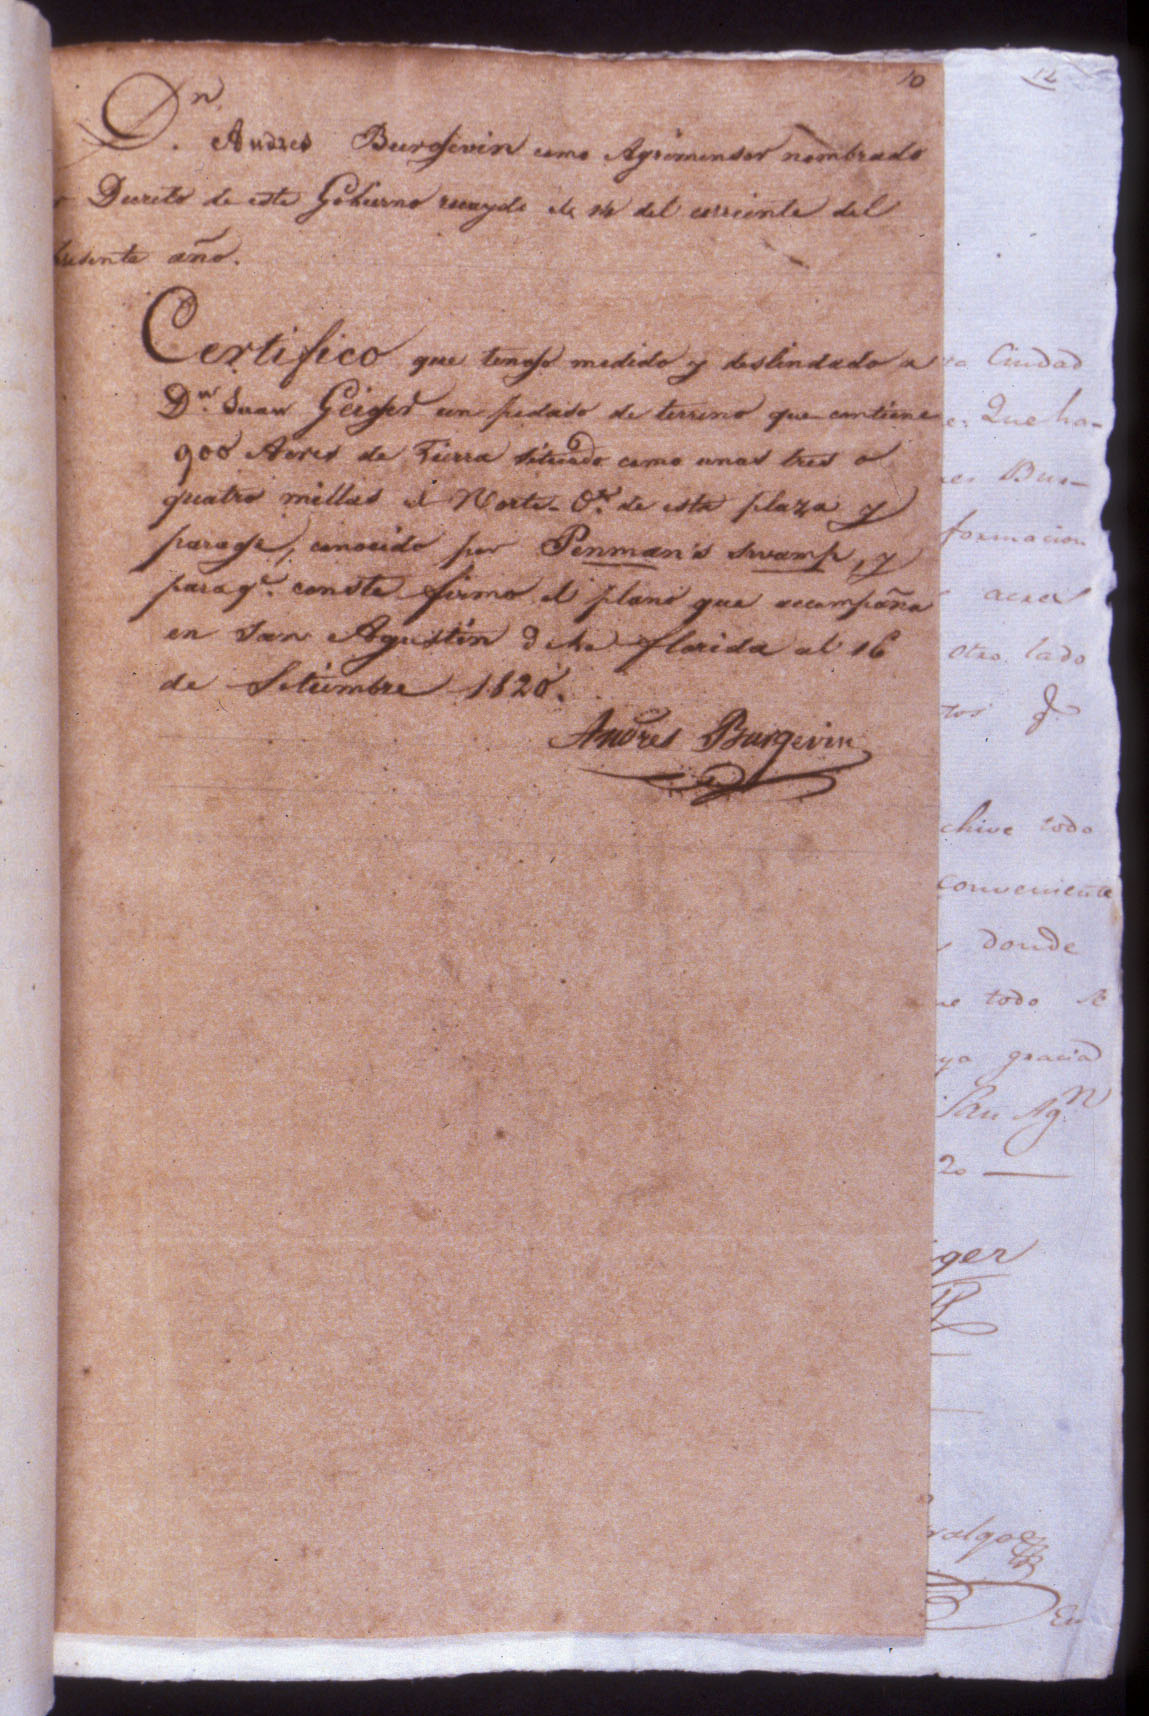 10
12
Dn. Andres Burgevin como Agrimensor nombrado
Decreto de este Gobierno recaydo de 14 del corriente del
presente año.
Certifico que tengo medido y deslindado a
Dn. Juan Geiger un pedaso de terreno que contiene
900 Acres de Tierra situado como unas tres o
quatro millas al Norte-Ote. de esta plaza y
parage, conocido por Penman's swamp, y
para qe. conste firmo el plano que acompaña
en San Agustin de la florida al 16
de Setiembre 1820.
Andres Burgevin
Ciudad
Que ha-
Bur-
formacion
acres
otro lado
chive todo
conveniente
donde
todo se
gracia
San Agn.
20
iger
En